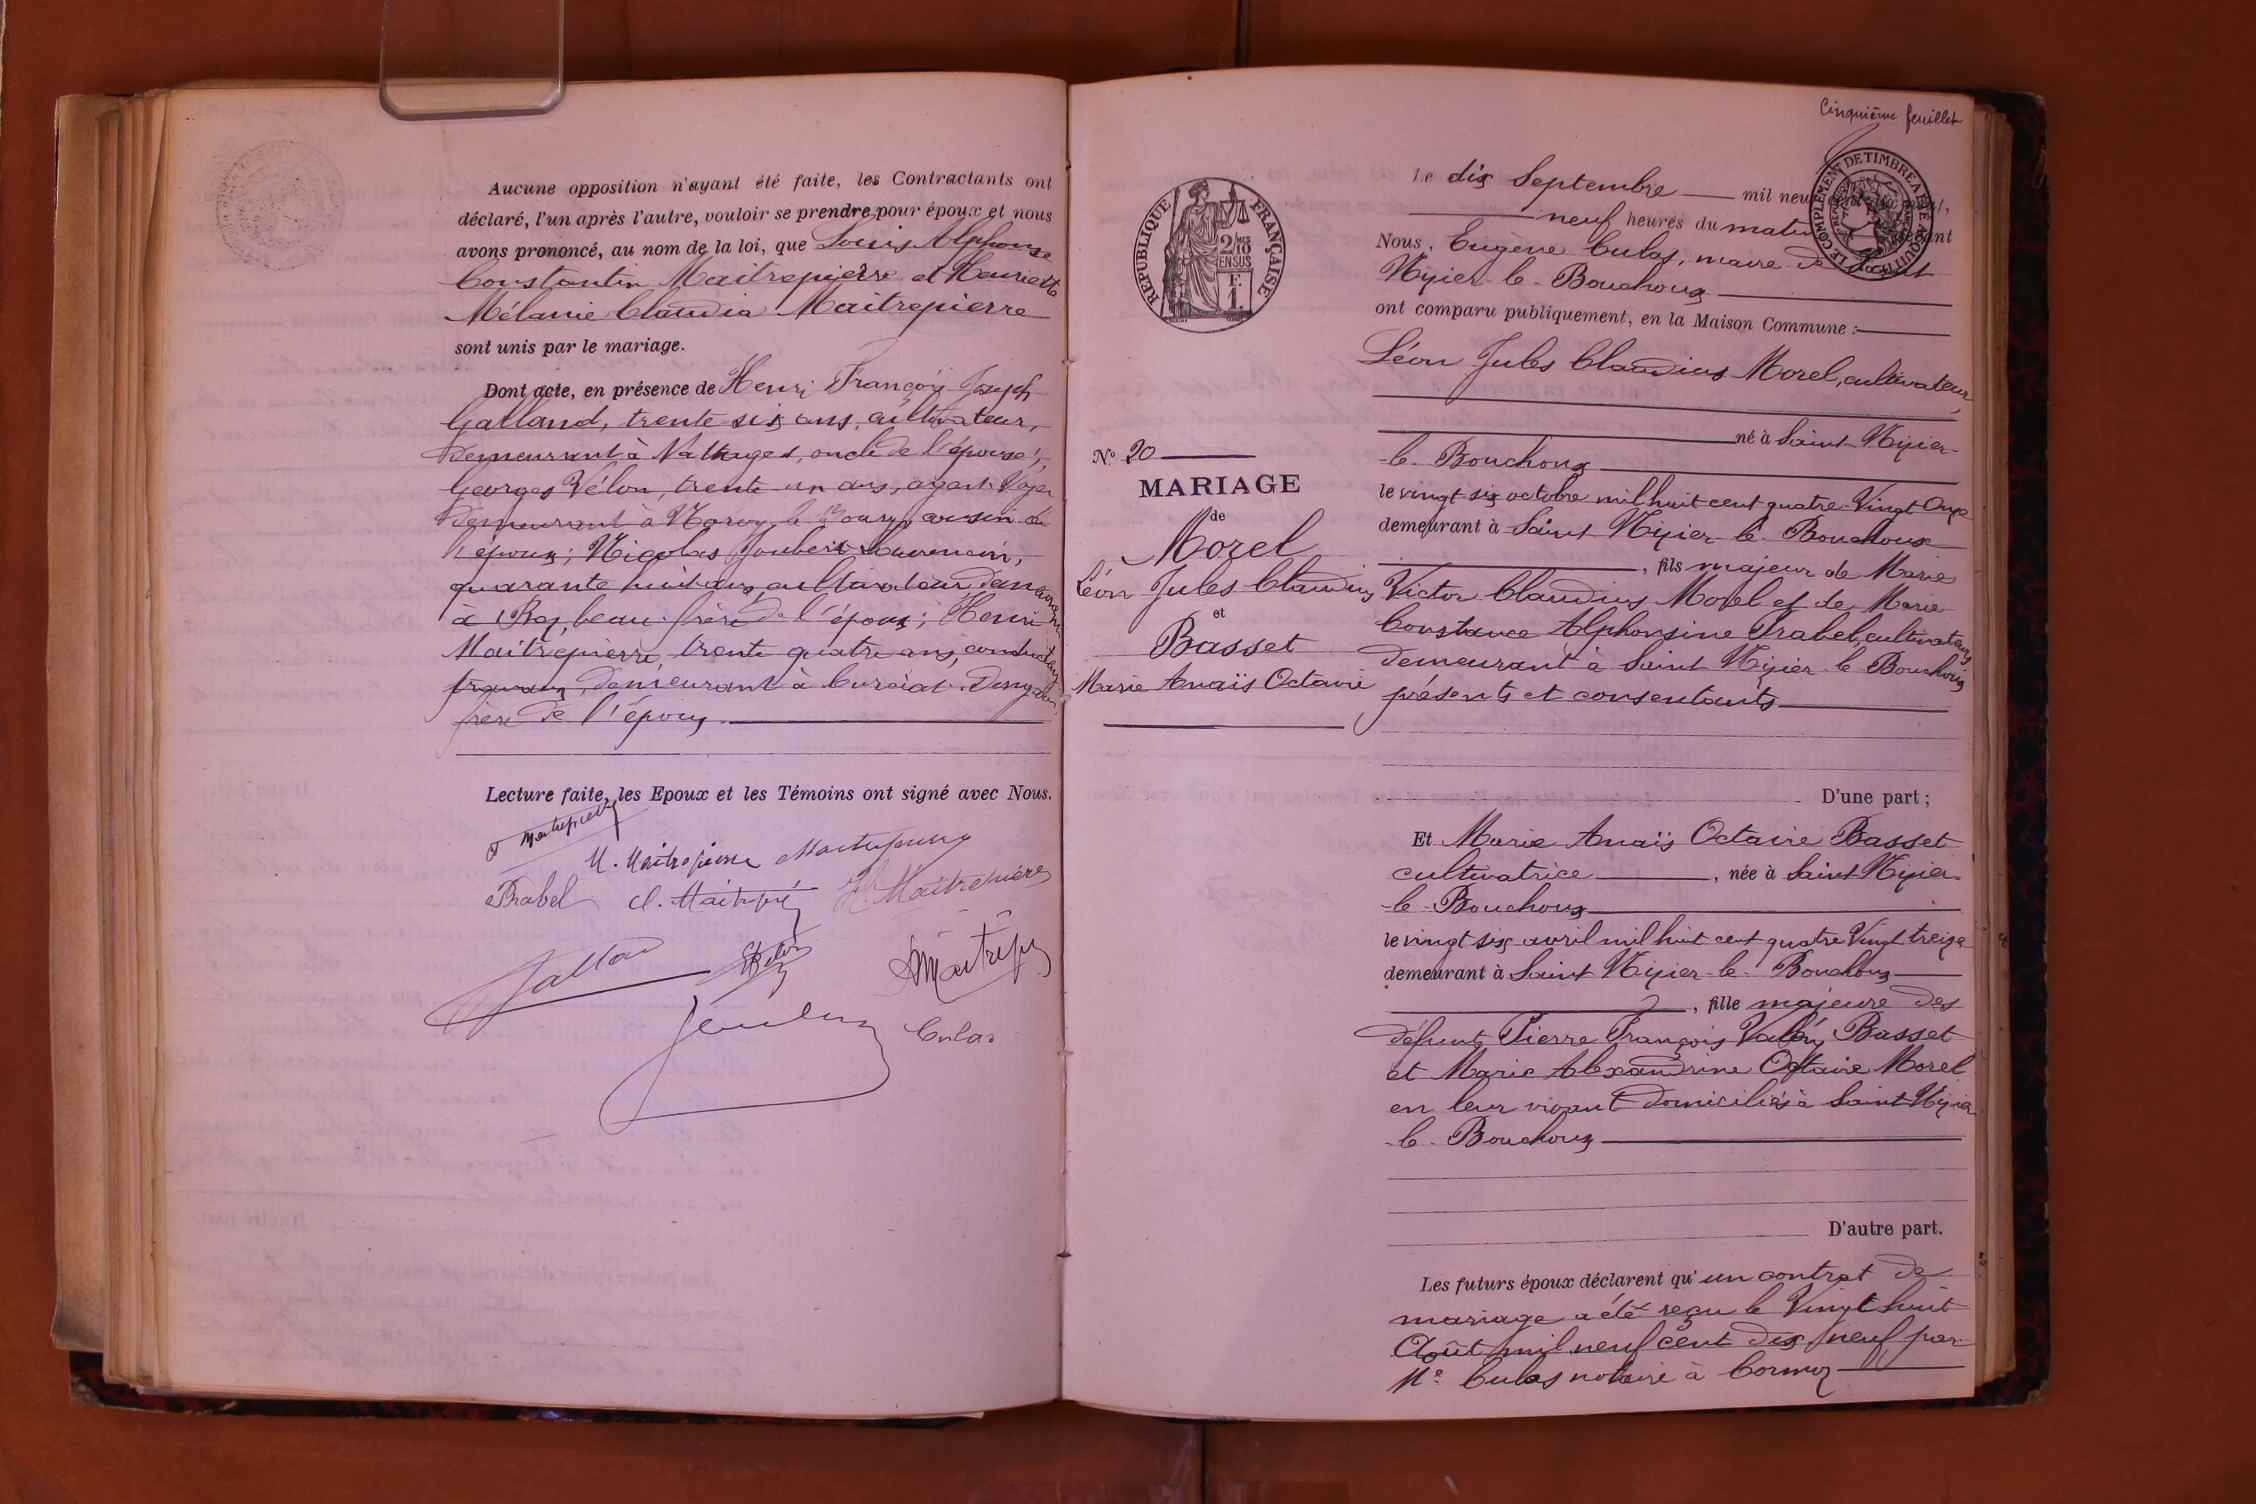 Aucune opposition n'ayant été faite, les Contractants ont
déclaré, l'un après l'autre, vouloir se prendre pour époux et nous
avons prononcé, au nom de la loi, que Louis Alphonse
Constantin Maitrepierre et Henriette
Mélanie Claudia Maitrepierre
sont unis par le mariage.
Dont acte, en présence de Henri François Joseph
Galland, trente six ans, cultivateur,
demeurant à oncle de l'épouse;
Georges Vélon, trente un ans, agent Voyer
demeurant à cousin de
l'époux; Nicolas Joubert
quarante huit ans, cultivateur demeurant
à beau-frère de l'époux; Henri
Maitrepierre, trente quatre ans, conducteur
demeurant à Curciat-Dongalon,
frère de l'époux.
Lecture faite, les Epoux et les Témoins ont signé avec Nous.
M. Maitrepierre
Brabel cl. H. Maitrepierre
Culas
Cinquième feuillet
Le dix Septembre mil neuf
neuf heures du matin
Nous, Eugène Culas, maire de Saint
Nizier-le-Bouchoux
ont comparu publiquement, en la Maison Commune :
Léon Jules Claudius Morel, cultivateur,
né à Saint Nizier-
le-Bouchoux
le vingt six octobre mil huit cent quatre Vingt Onze
demeurant à Saint Nizier-le-Bouchoux
, fils majeur de Marie
Victor Claudius Morel et de Marie
Constance Alphonsine Brabel, cultivateurs
demeurant à Saint Nizier-le-Bouchoux
présents et consentants
D'une part ;
Et Marie Anaïs Octavie Basset
cultivatrice , née à Saint Nizier-
le-Bouchoux
le vingt six avril mil huit cent quatre Vingt treize
demeurant à Saint Nizier-le-Bouchoux
, fille majeure des
défunts Pierre François Valéry Basset
et Marie Alexandrine Octavie Morel
en leur vivant domiciliés à Saint Nizier
-le-Bouchoux
D'autre part.
Les futurs époux déclarent qu'un contrat de
mariage a été reçu le Vingt huit
Août mil neuf cent dix neuf par
Me Culas notaire à Cormoz
RÉPUBLIQUE FRANÇAISE
2/10
EN SUS
F.
1.
LE COMPLÉMENT DE TIMBRE A ÉTÉ ACQUITTÉ
N° 20
MARIAGE
de
Morel
Léon Jules Claudius
et
Basset
Marie Anaïs Octavie